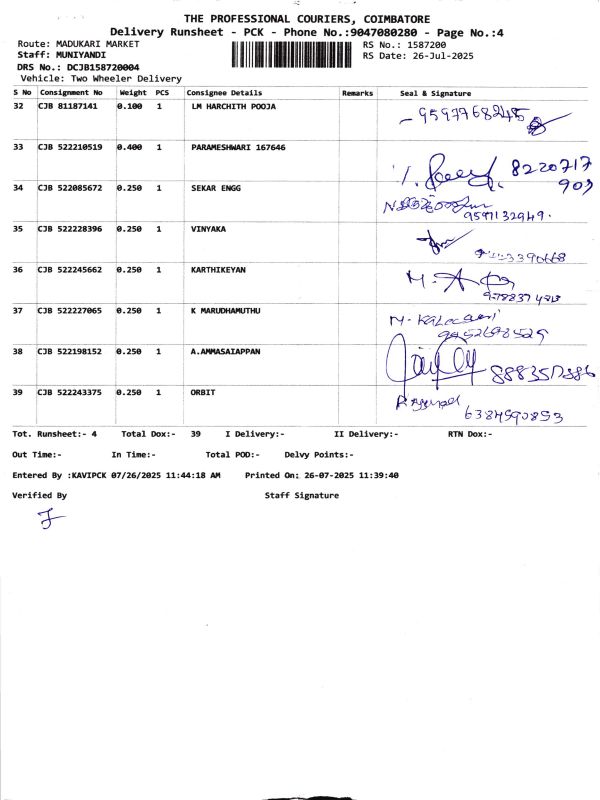 THE PROFESSIONAL COURIERS, COIMBATORE
Delivery Runsheet - PCK - Phone No.:9047080280 - Page No.:4
Route: MADUKARI MARKET RS No.: 1587200
Staff: MUNIYANDI RS Date: 26-Jul-2025
DRS No.: DCJB158720004
Vehicle: Two Wheeler Delivery
S No Consignment No Weight PCS Consignee Details Remarks Seal & Signature
32 CJB 81187141 0.100 1 LM HARCHITH POOJA
33 CJB 522210519 0.400 1 PARAMESHWARI 167646
8220717
903
34 CJB 522085672 0.250 1 SEKAR ENGG
9597132949.
35 CJB 522228396 0.250 1 VINYAKA
36 CJB 522245662 0.250 1 KARTHIKEYAN
37 CJB 522227065 0.250 1 K MARUDHAMUTHU
38 CJB 522198152 0.250 1 A.AMMASAIAPPAN
39 CJB 522243375 0.250 1 ORBIT
6384590853
Tot. Runsheet:- 4 Total Dox:- 39 I Delivery:- II Delivery:- RTN Dox:-
Out Time:- In Time:- Total POD:- Delvy Points:-
Entered By :KAVIPCK 07/26/2025 11:44:18 AM Printed On: 26-07-2025 11:39:40
Verified By Staff Signature